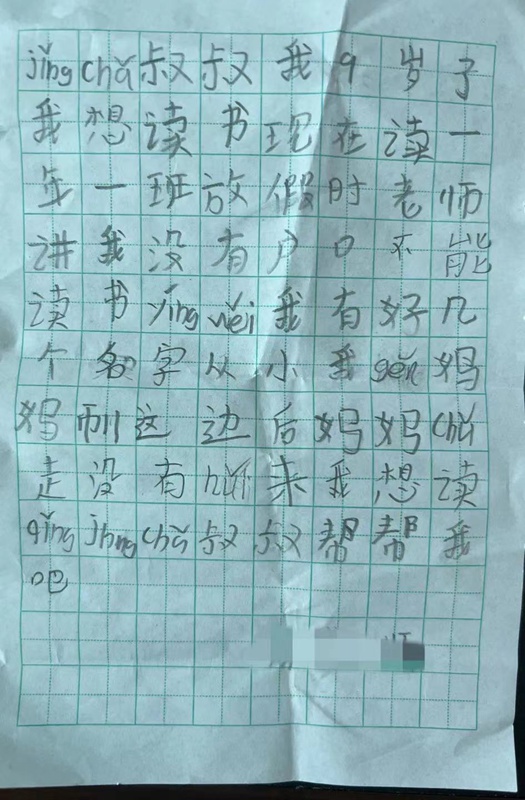 jǐng chǎ 叔叔我9岁了
我想读书现在读一
年一班放假时老师
讲我没有户口不能
读书 yīng wěi 我有好几
个名字从小我 gěn 妈
妈到这边后妈妈 chǔ
走没有 huǐ 来我想读
qǐng jǐng chǎ 叔叔帮帮我
吧